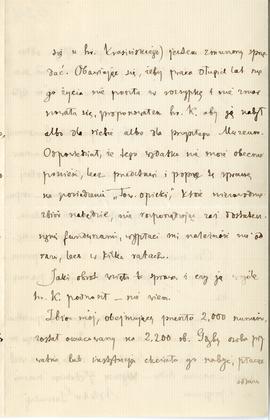 się u hr. Krasińskiego) jestem zmuszony sprze-
dać. Obawiając się, żeby praca długich lat me-
go życia nie poszła w rozsypkę i nie zmar-
nowała się, proponowałem hr. K. aby ją nabył
albo dla siebie albo dla przyszłego Muzeum.
Odpowiedział, że tego wydatku nie może obecnie
ponieść, lecz przedstawi i poprze tę sprawę
na posiedzeniu „Tow. opieki”, które niezawodnie
zbiór nabędzie, nie rozporządzając zaś dostatecz-
nymi funduszami, wypłaci mi należność nie od
razu, lecz w kilku ratach.
Jaki obrót wzięła ta sprawa i czy ją
hr. K. podnosił — nie wiem.
Zbiór mój, obejmujący przeszło 2,000 numerów,
został oszacowany na 2,200 rb. Gdyby osoba pry-
watna lub instytucja chciała go nabyć, płacąc